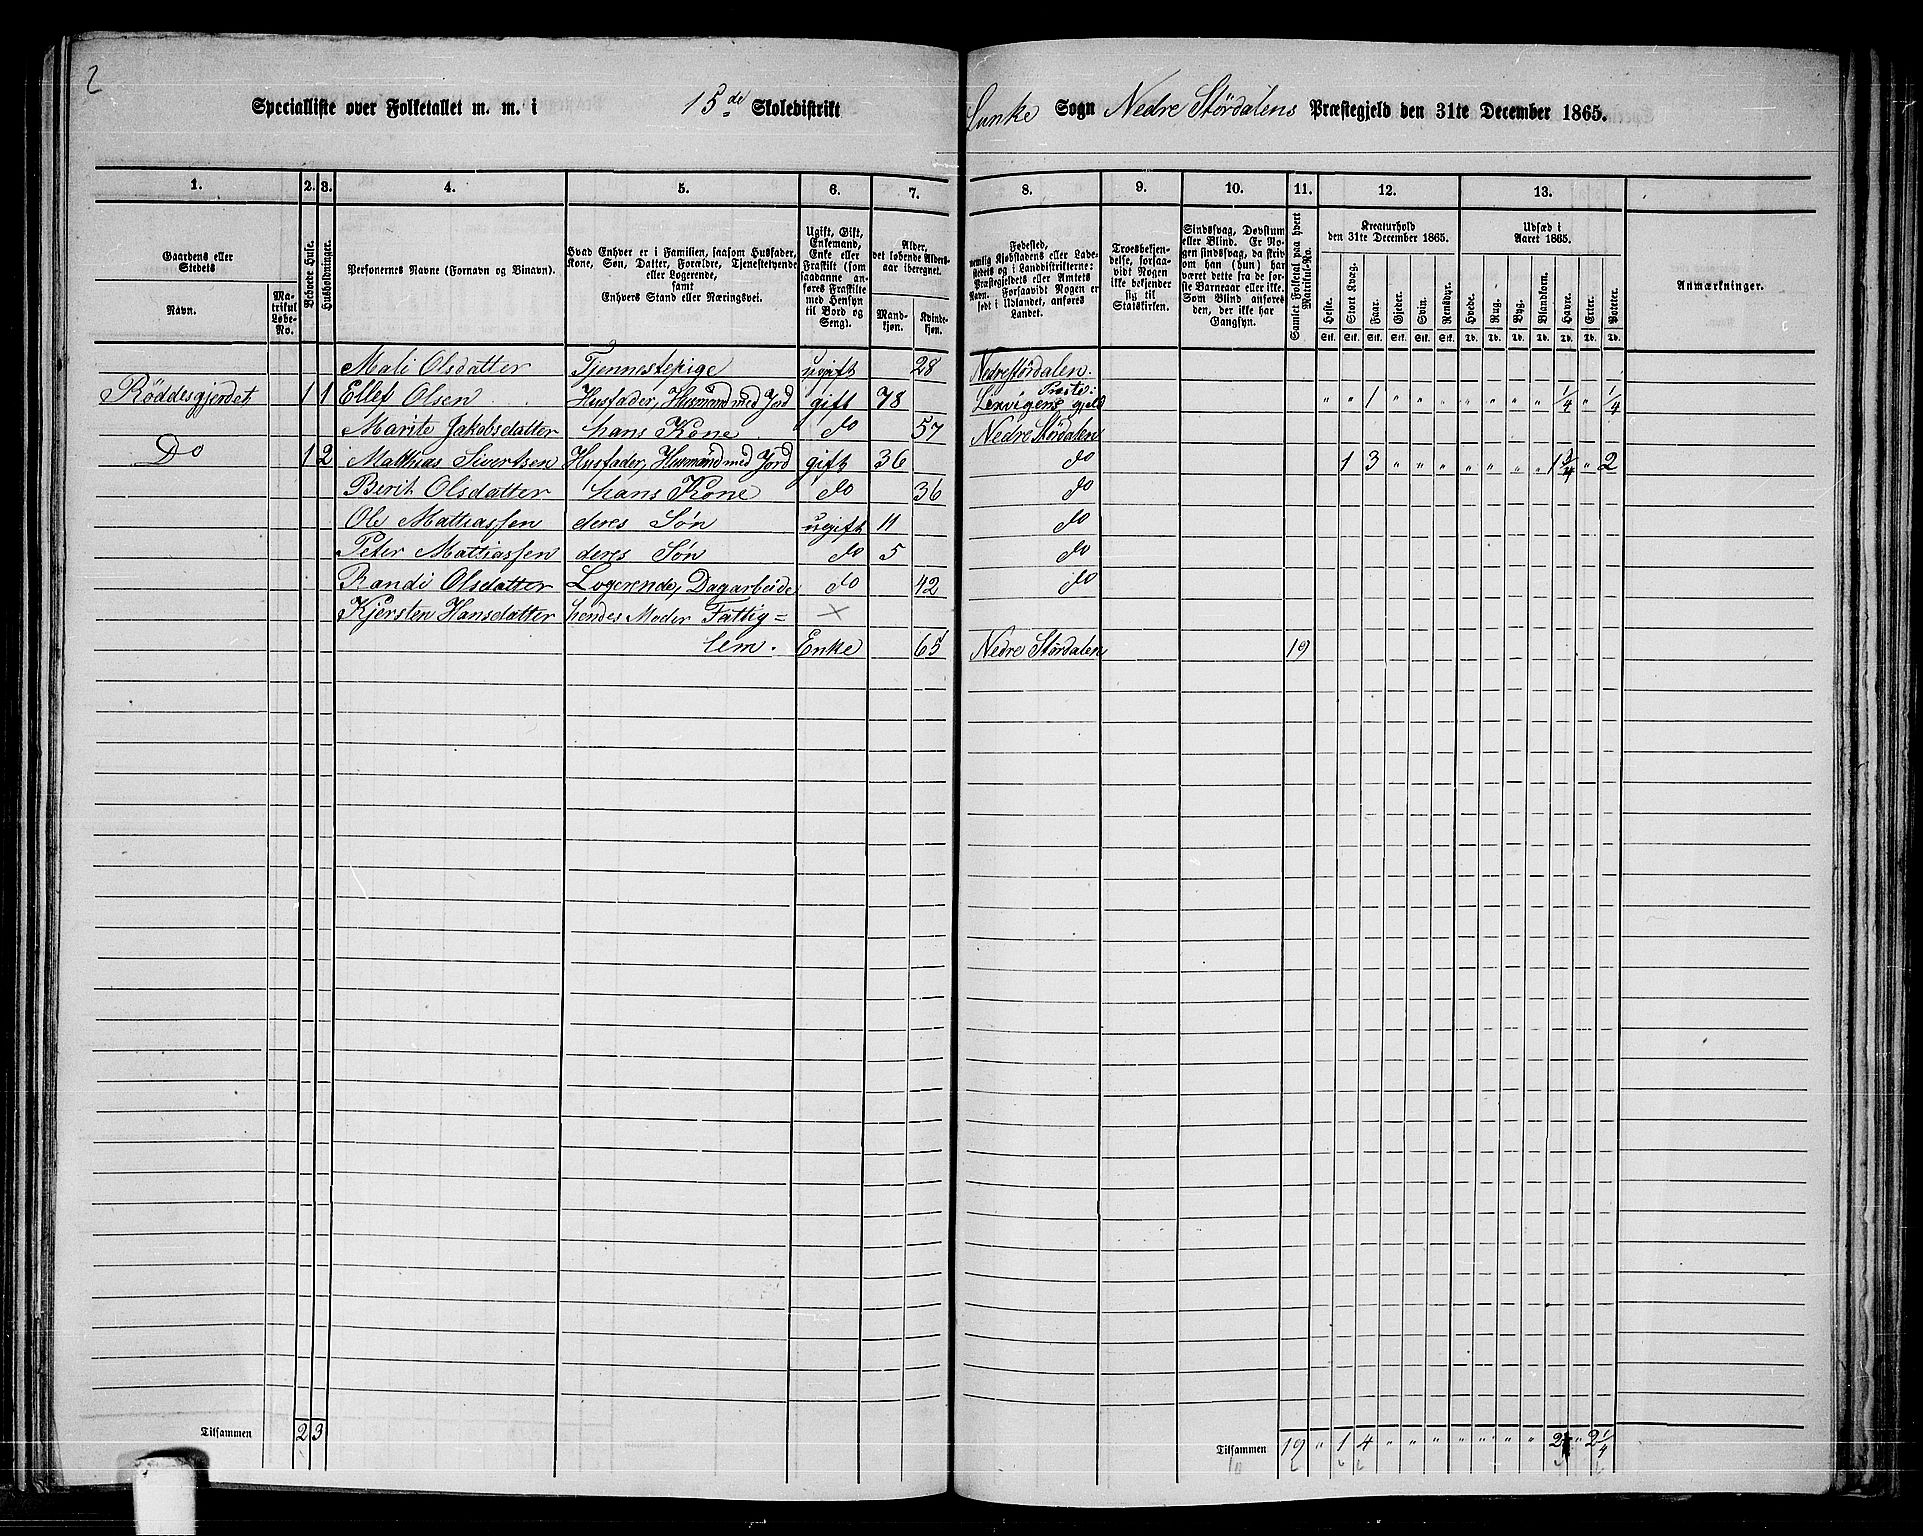 2
Specialliste over Folketallet m. m. i 15de Skoledistrikt Lunke Sogn Nedre Stördalens Præstegjeld den 31te December 1865.
1. 2. 3. 4. 5. 6. 7. 8. 9. 10. 11. 12. 13.
Gaardens eller Stedets
Navn.
Matrikul Løbe-No.
Beboede Huse.
Husholdninger.
Personernes Navne (Fornavn og Binavn).
Hvad Enhver er i Familien, saasom Husfader, Kone, Søn, Datter, Forældre, Tjenestetyende eller Logerende, samt Enhvers Stand eller Næringsvei.
Ugift, Gift, Enkemand, Enke eller Fraskilt (som saadanne anføres Fraskilte med Hensyn til Bord og Seng).
Alder, det løbende Aldersaar iberegnet.
Mandkjøn.
Kvindekjøn.
Fødested, nemlig Kjøbstadens eller Ladestedets og i Landdistrikterne: Præstegjeldets eller Amtets Navn. Forsaavidt Nogen er født i Udlandet, anføres Landet.
Troesbekjendelse, forsaavidt Nogen ikke bekjender sig til Statskirken.
Sindssvag, Døvstum eller Blind. Er Nogen sindssvag, da skrives om han (hun) har været dette fra de første Barneaar eller ikke. Som Blind anføres den, der ikke har Gangsyn.
Samlet Folketal paa hvert Matrikul-No.
Kreaturhold den 31te December 1865.
Heste. Stort Kvæg. Faar. Gjeder. Svin. Rensdyr.
Stk. Stk. Stk. Stk. Stk. Stk.
Udsæd i Aaret 1865.
Hvede. Rug. Byg. Blandkorn. Havre. Erter. Poteter.
Td. Td. Td. Td. Td. Td. Td.
Anmærkninger.
Mali Olsdatter Tjennestepige ugift 28 Nedre Stördalen.
Röddesgjerdet 1 1 Ellef Olsen Husfader, Husmand med Jord gift 78 Lexvigens Præstegjeld " " 1 " " " " " " " 1/4 " 1/4
Marite Jakobsdatter hans Kone do 57 Nedre Stördalen
Do 1 2 Matthias Sivertsen Husfader, Husmand med Jord gift 36 do 1 3 " " " " " " " 1 3/4 " 2
Berit Olsdatter hans Kone do 36 do
Ole Mathiassen deres Søn ugift 11 do
Peter Mathiassen deres Søn do 5 do
Randi Olsdatter Logerende, Dagarbeide do 42 do
Kjersten Hansdatter hendes Moder Fattig= ×
lem. Enke 65 Nedre Stördalen 19
Tilsammen 2 3
Tilsammen 19 " 1 4 " " " " " " " 2 " 2 1/4
10